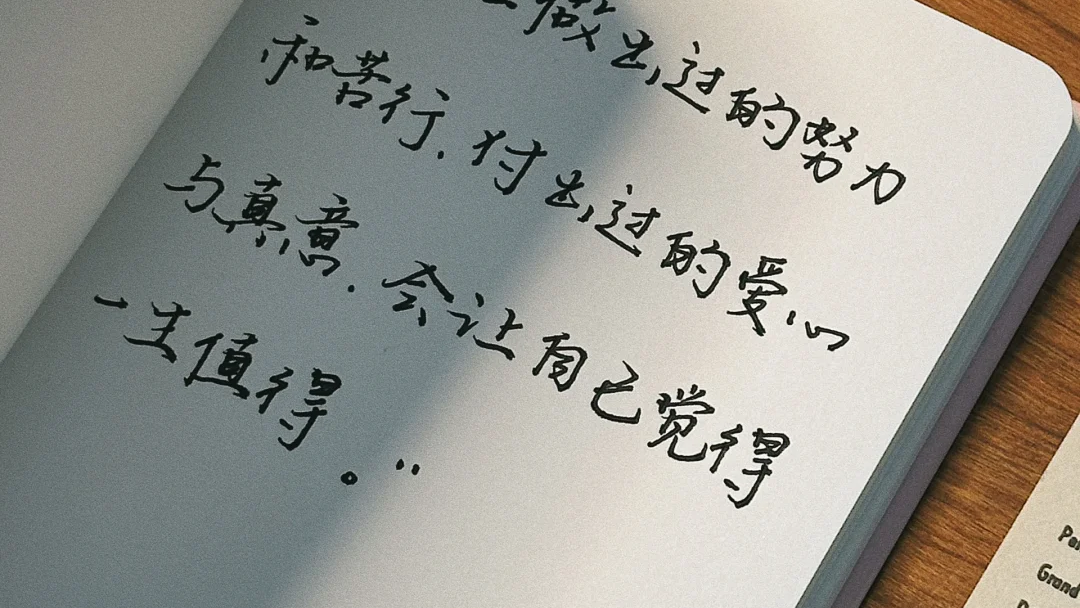 做出过的努力
和苦行,付出过的爱心
与真意,会让自己觉得
一生值得。”
Grand